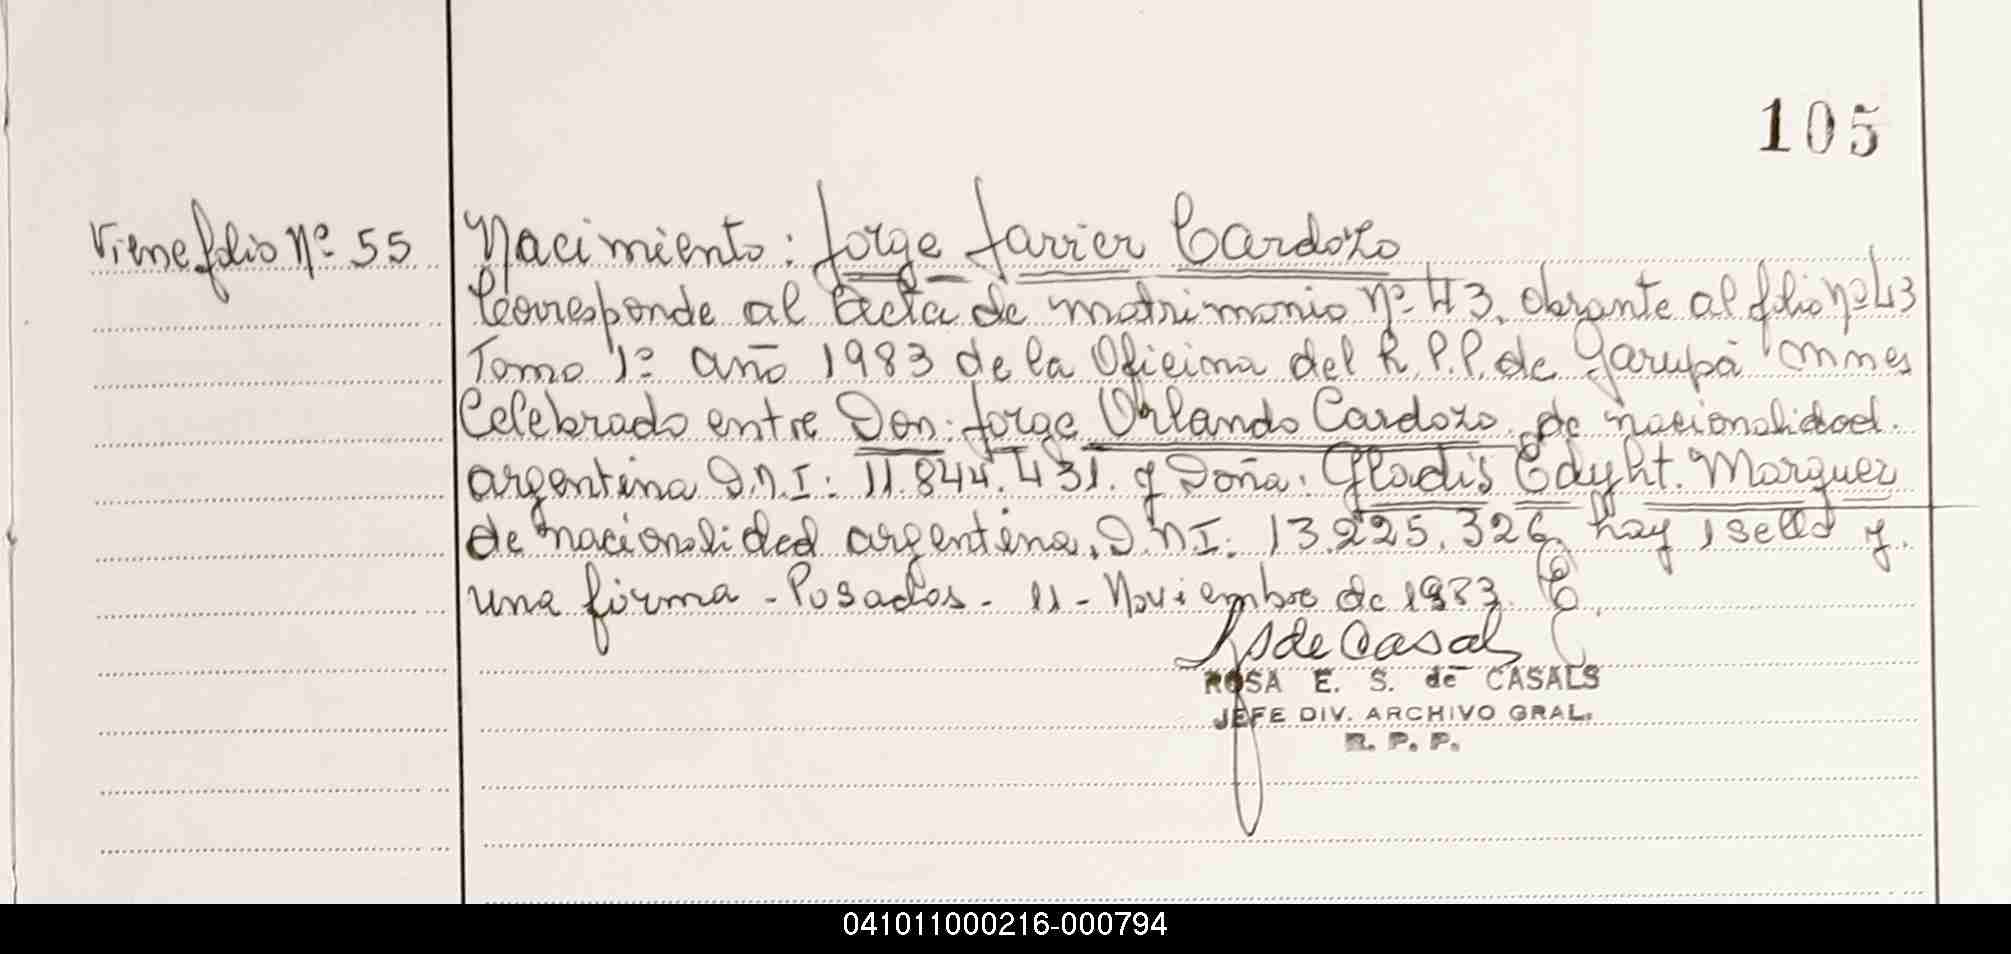 105
Viene folio nº 55
Nacimiento: Jorge Javier Cardozo
Corresponde al Acta de matrimonio nº 43. obrante al folio nº 43
Tomo 1º año 1983 de la Oficina del R.P.P. de Garupá mnes
Celebrado entre Don: Jorge Orlando Cardozo. de nacionalidad.
argentina D.N.I: 11.844.431. y Doña: Gladis Edyht. Marquez
de nacionalidad argentina. D.N.I: 13.225.326. hay 1 sello y.
una firma - Posadas - 11 - Noviembre de 1983.
de Casals
ROSA E. S. de CASALS
JEFE DIV. ARCHIVO GRAL.
R. P. P.
041011000216-000794